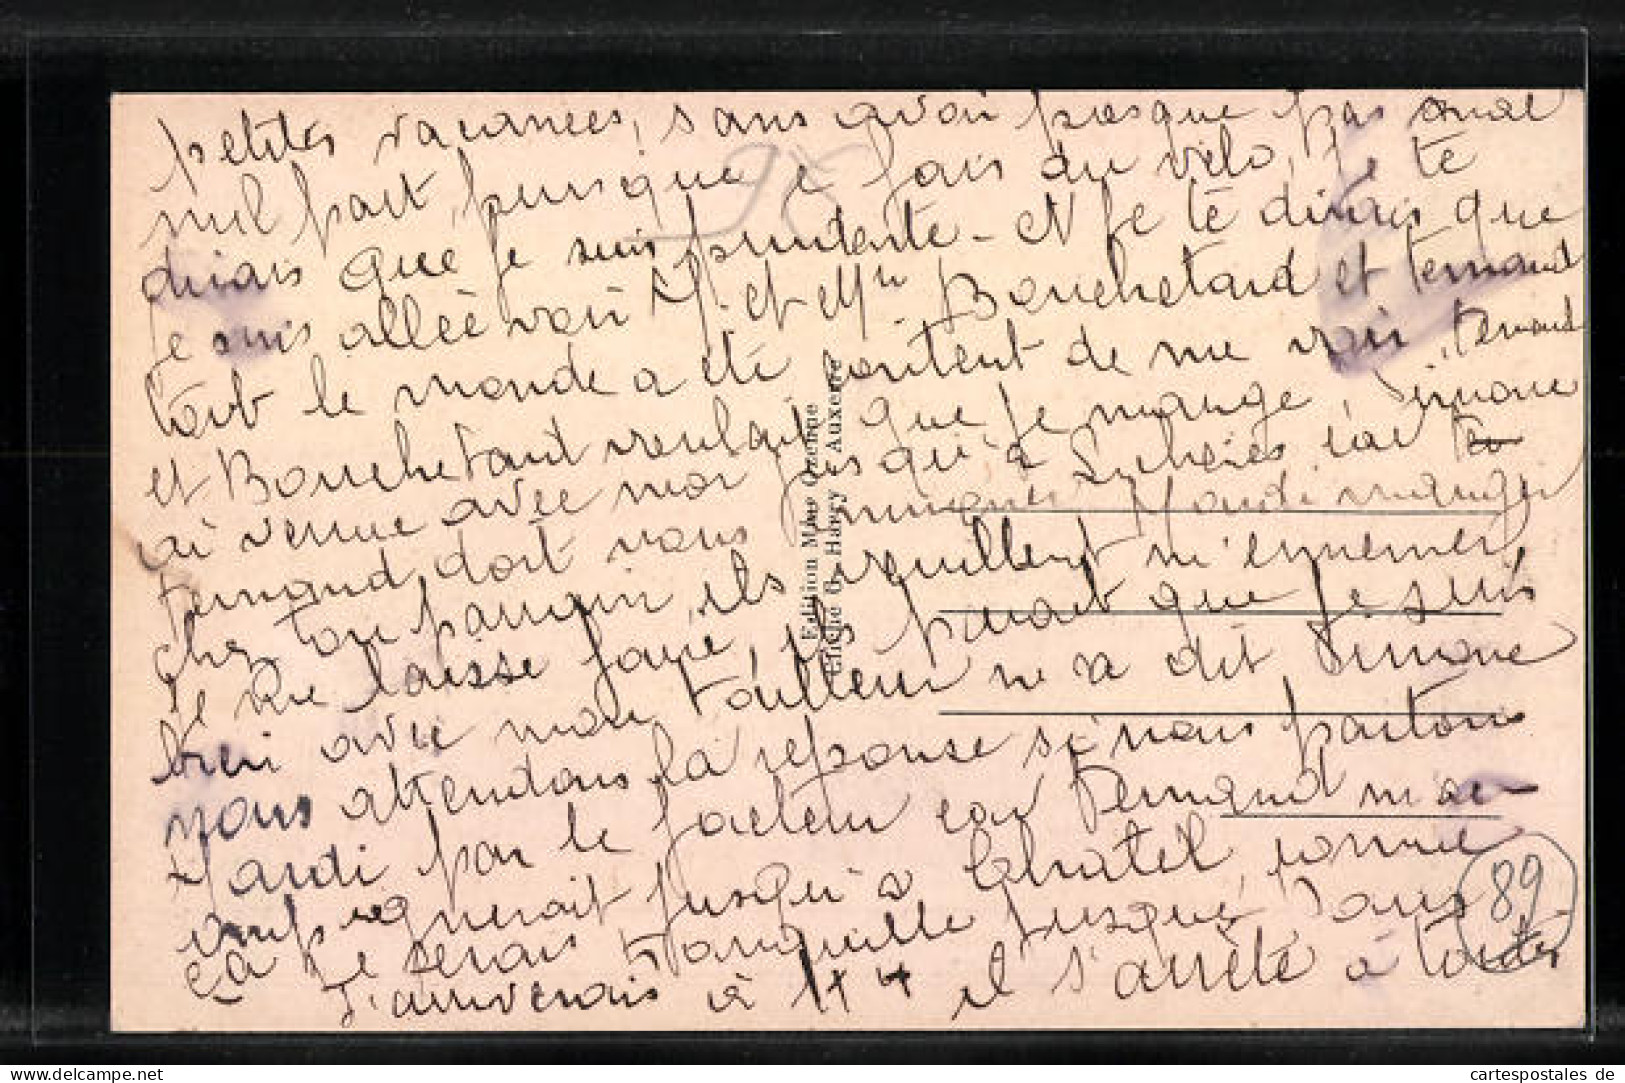 petites vacances, sans avoir presque pas mal
nul part, puisque je fais du vélo, je te
dirais que je suis prudente - N je te dirais que
je suis allée voir M. et Mme Bouchetard et Fernand
tout le monde a été content de me voir, Fernand
et Bouchetard voulait que je mange, Simone
ai venue avec moi jusqu'à Lucheres car
Fernand doit nous Mardi manger
chez ton parrain, ils veuillent m'emmener
je me laisse faire, il parait que je suis
bien avec mon tailleur m'a dit Simone
nous attendons la réponse si nous partons
Mardi par le facteur car Fernand m'ac
ompagnerait jusqu'a Chatel, comme
ça je serais tranquille jusque, dans
J'arriverais à 14 H il s'arrête à toutes
Edition Mme Quenne
Cliché G. Harry - Auxerre
89
cartespostales de